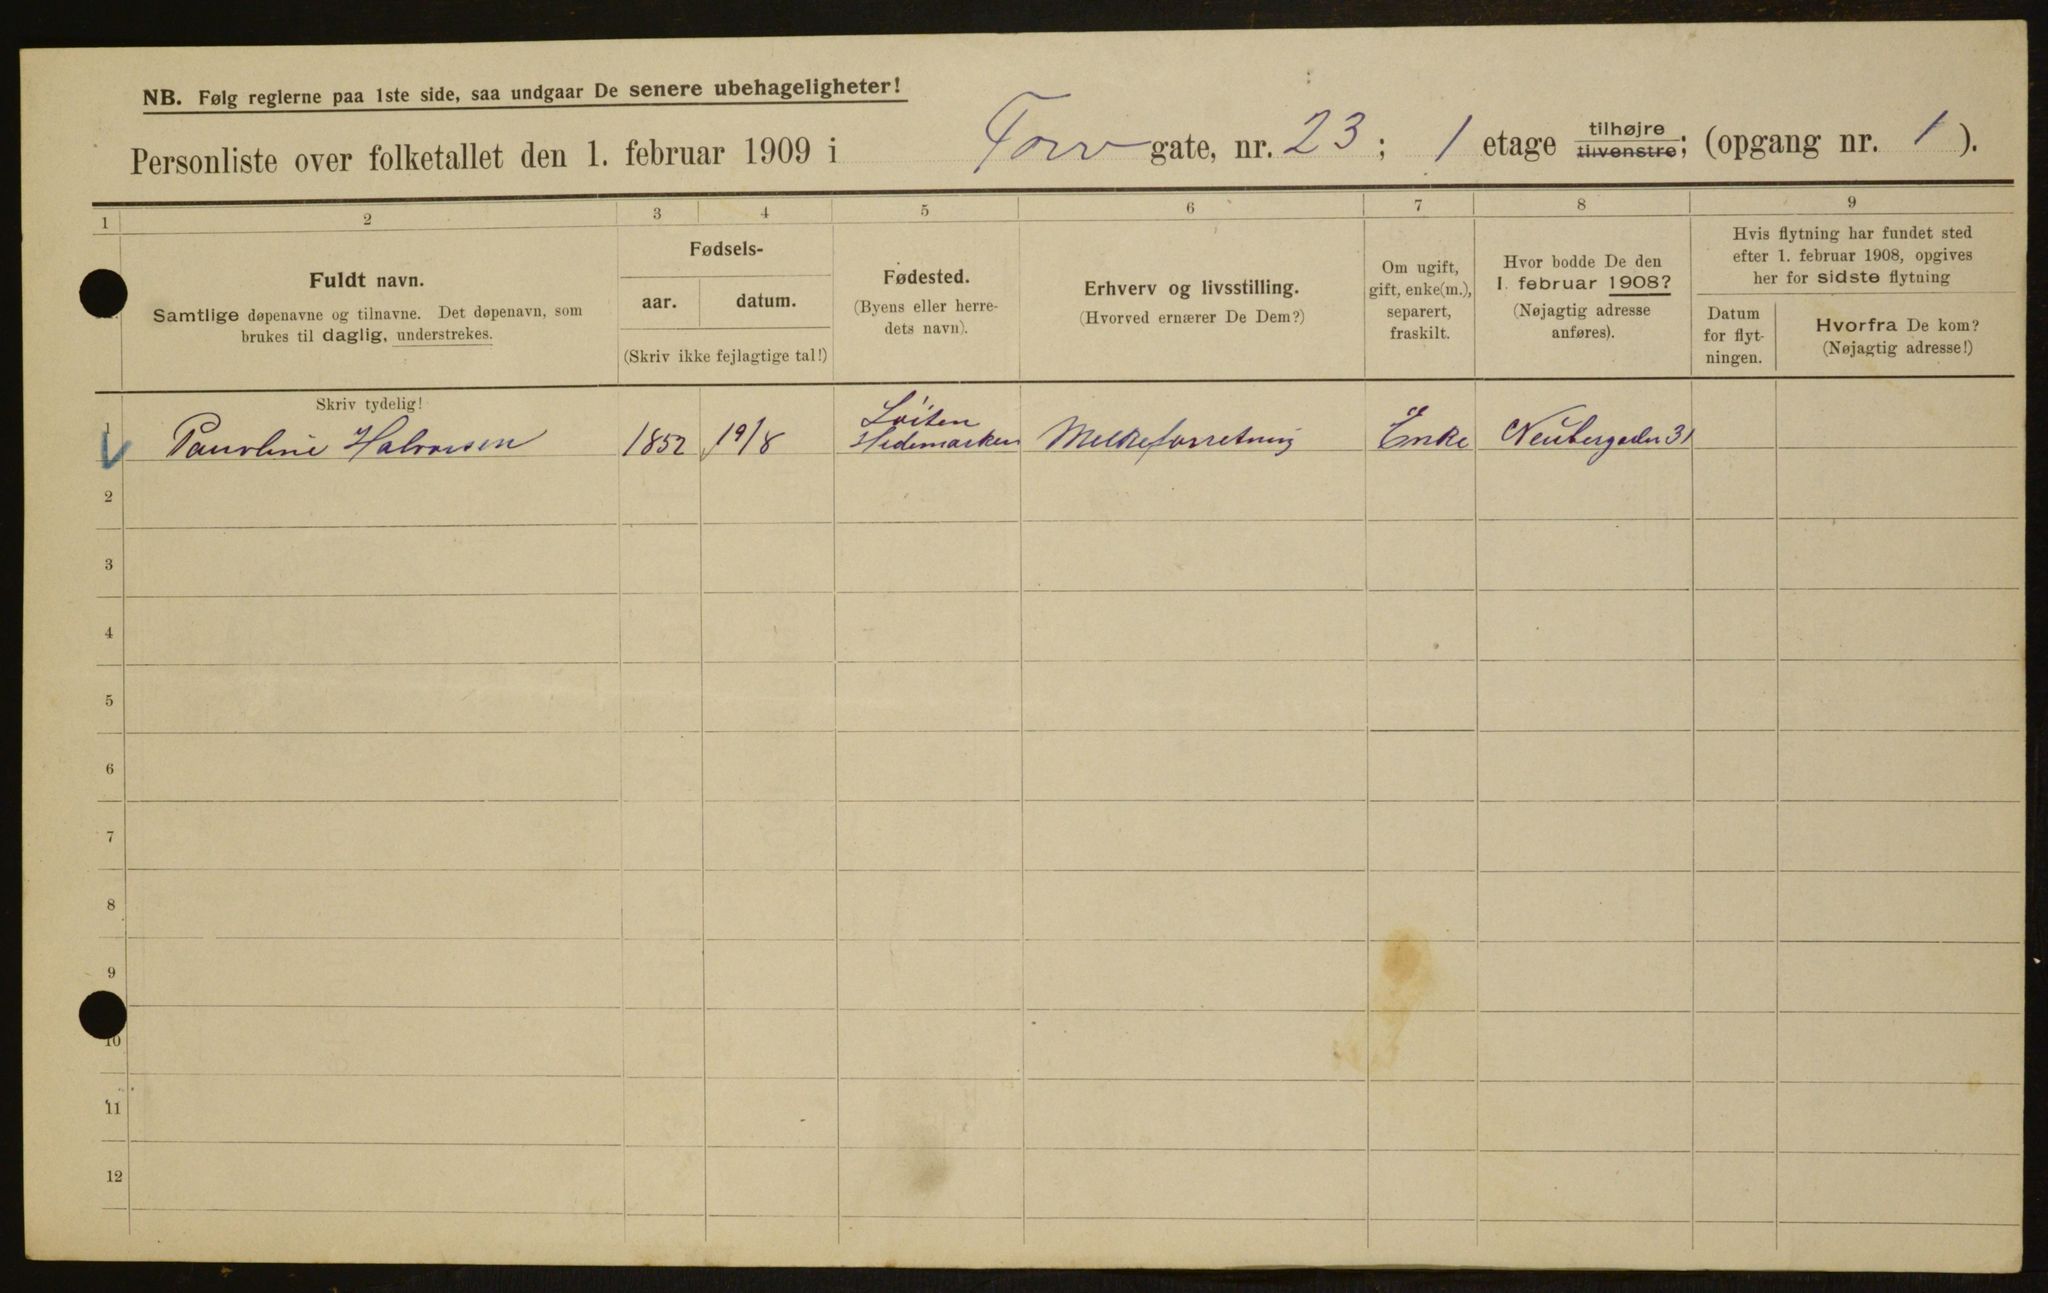 NB. Følg reglerne paa 1ste side, saa undgaar De senere ubehageligheter!
Personliste over folketallet den 1. februar 1909 i Torv gate, nr. 23 ; 1 etage tilhøjre tilvenstre; (opgang nr. 1 ).
1 2 3 4 5 6 7 8 9
Fuldt navn.
Samtlige døpenavne og tilnavne. Det døpenavn, som
brukes til daglig, understrekes.
Fødsels-
aar. datum.
(Skriv ikke fejlagtige tal!)
Fødested.
(Byens eller herre-
dets navn).
Erhverv og livsstilling.
(Hvorved ernærer De Dem?)
Om ugift,
gift, enke(m.),
separert,
fraskilt.
Hvor bodde De den
1. februar 1908?
(Nøjagtig adresse
anføres).
Hvis flytning har fundet sted
efter 1. februar 1908, opgives
her for sidste flytning
Datum
for flyt-
ningen.
Hvorfra De kom?
(Nøjagtig adresse!)
Skriv tydelig!
Løiten
1 Pauoline Halvorsen 1852 19/8 Hedemarken Melkeforretning Enke Neubergadn 31
2
3
4
5
6
7
8
9
10
11
12